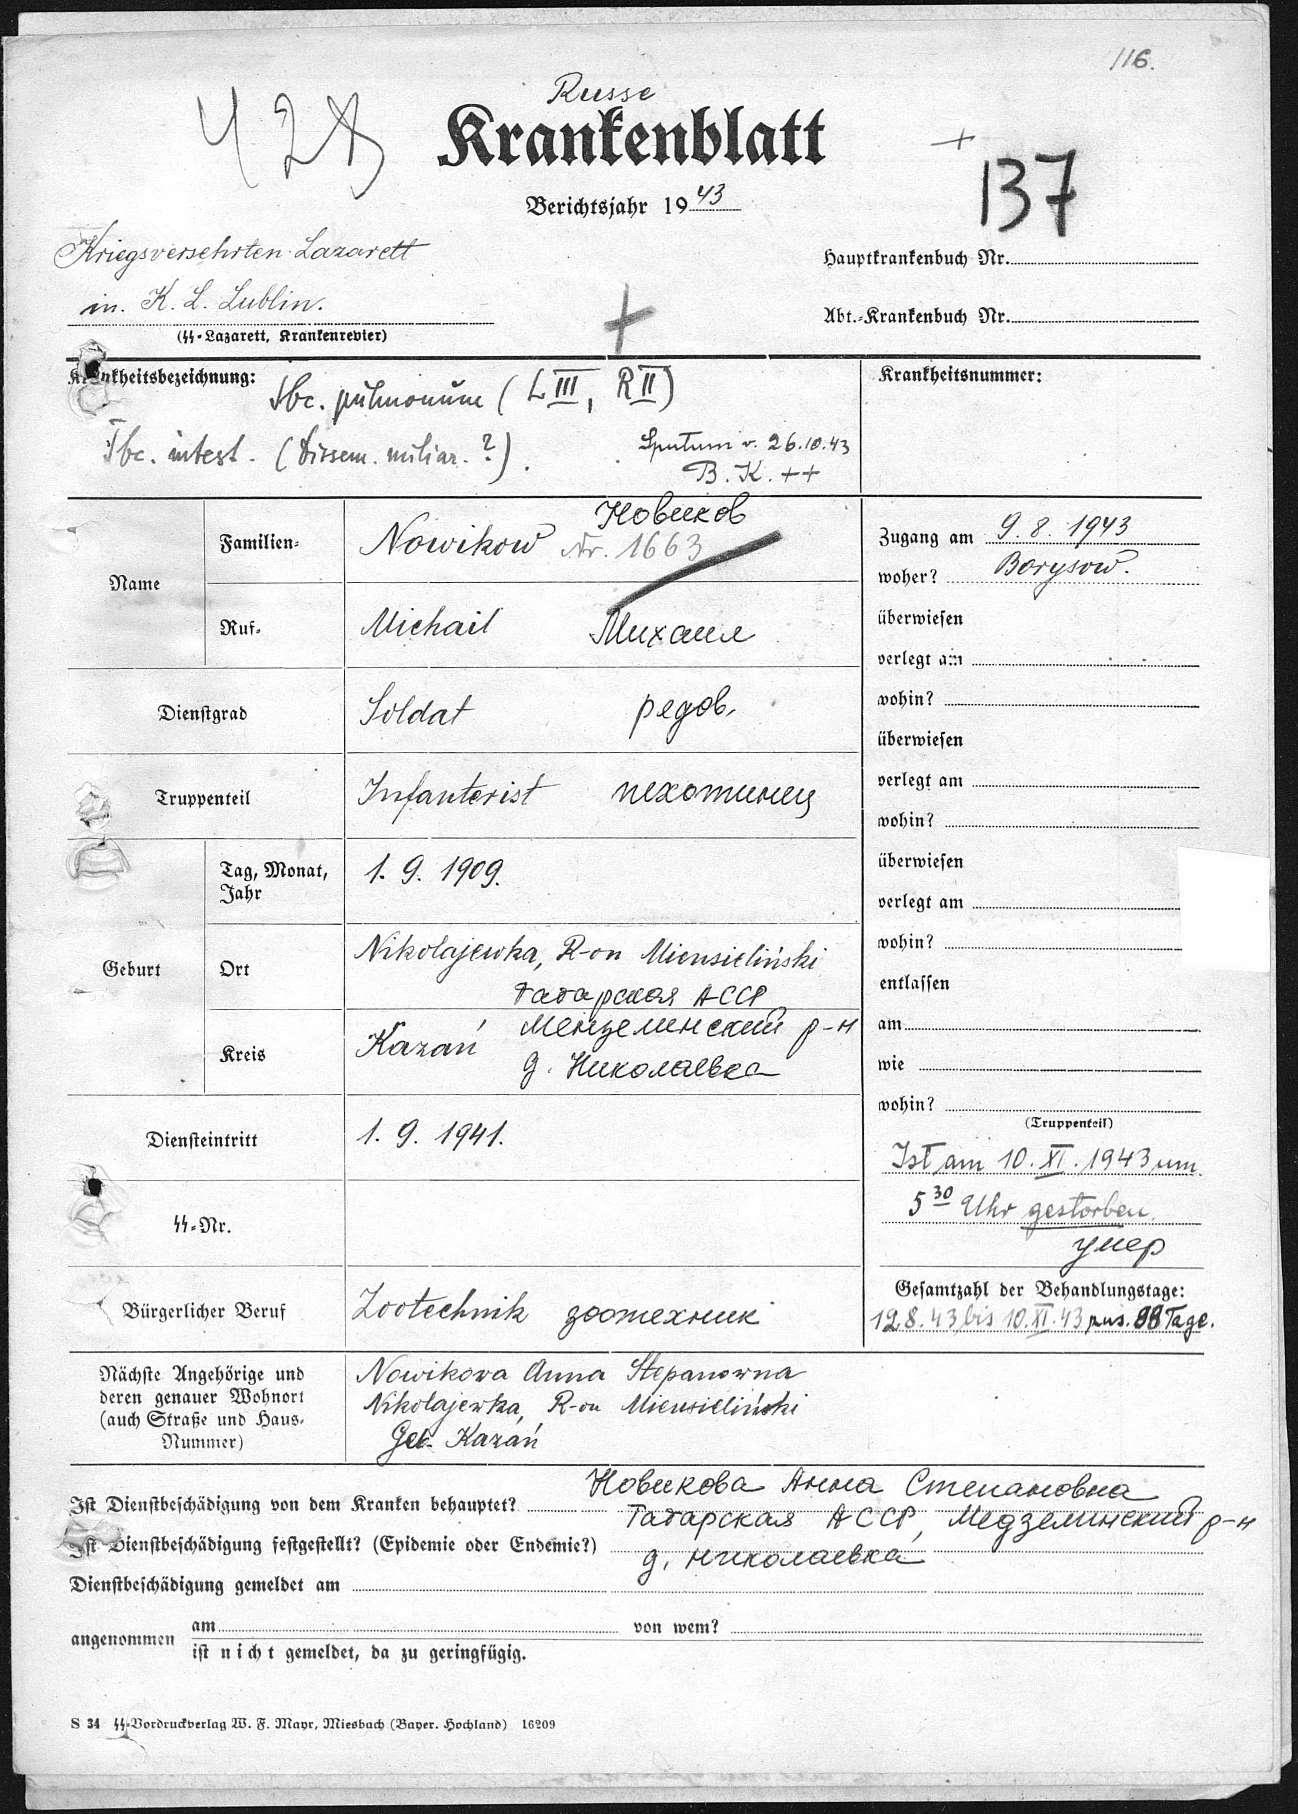 116.
Russe
Krankenblatt
137
Berichtsjahr 1943
Kriegsversehrten-Lazarett
in. K. L. Lublin.
(SS-Lazarett, Krankenrevier)
Hauptkrankenbuch Nr.
Abt.-Krankenbuch Nr.
Krankheitsbezeichnung: Tbc. pulmonum (L III, R II)
Tbc. intest. (Dissem. miliar. ?).
Sputum v. 26.10.43
B. K. ++
Krankheitsnummer:
Name
Familien-
Nowikow Nr. 1663
Новиков
Ruf-
Michail Михаил
Dienstgrad
Soldat рядов.
Truppenteil
Infanterist пехотинец
Geburt
Tag, Monat, Jahr
1. 9. 1909.
Ort
Nikolajewka, R-on Miensieliński
Татарская АССР
Kreis
Kazań Мензелинский р-н
д. Николаевка
Diensteintritt
1. 9. 1941.
SS-Nr.
Bürgerlicher Beruf
Zootechnik зоотехник
Nächste Angehörige und
deren genauer Wohnort
(auch Straße und Haus-
Nummer)
Nowikova Anna Stepanowna
Nikolajewka, R-on Miensieliński
Geb. Kazań
Zugang am 9. 8. 1943
woher? Borysow.
überwiesen
verlegt am
wohin?
überwiesen
verlegt am
wohin?
überwiesen
verlegt am
wohin?
entlassen
am
wie
wohin?
(Truppenteil)
Ist am 10. XI. 1943 um
5 30 Uhr gestorben.
умер
Gesamtzahl der Behandlungstage:
12.8.43 bis 10.XI.43 zus. 88 Tage.
Новикова Анна Степановна
Ist Dienstbeschädigung von dem Kranken behauptet?
Татарская АССР, Медзелинский р-н
Ist Dienstbeschädigung festgestellt? (Epidemie oder Endemie?)
д. Николаевка
Dienstbeschädigung gemeldet am
angenommen am von wem?
ist nicht gemeldet, da zu geringfügig.
S 34 SS-Vordruckverlag W. F. Mayr, Miesbach (Bayer. Hochland) 16209